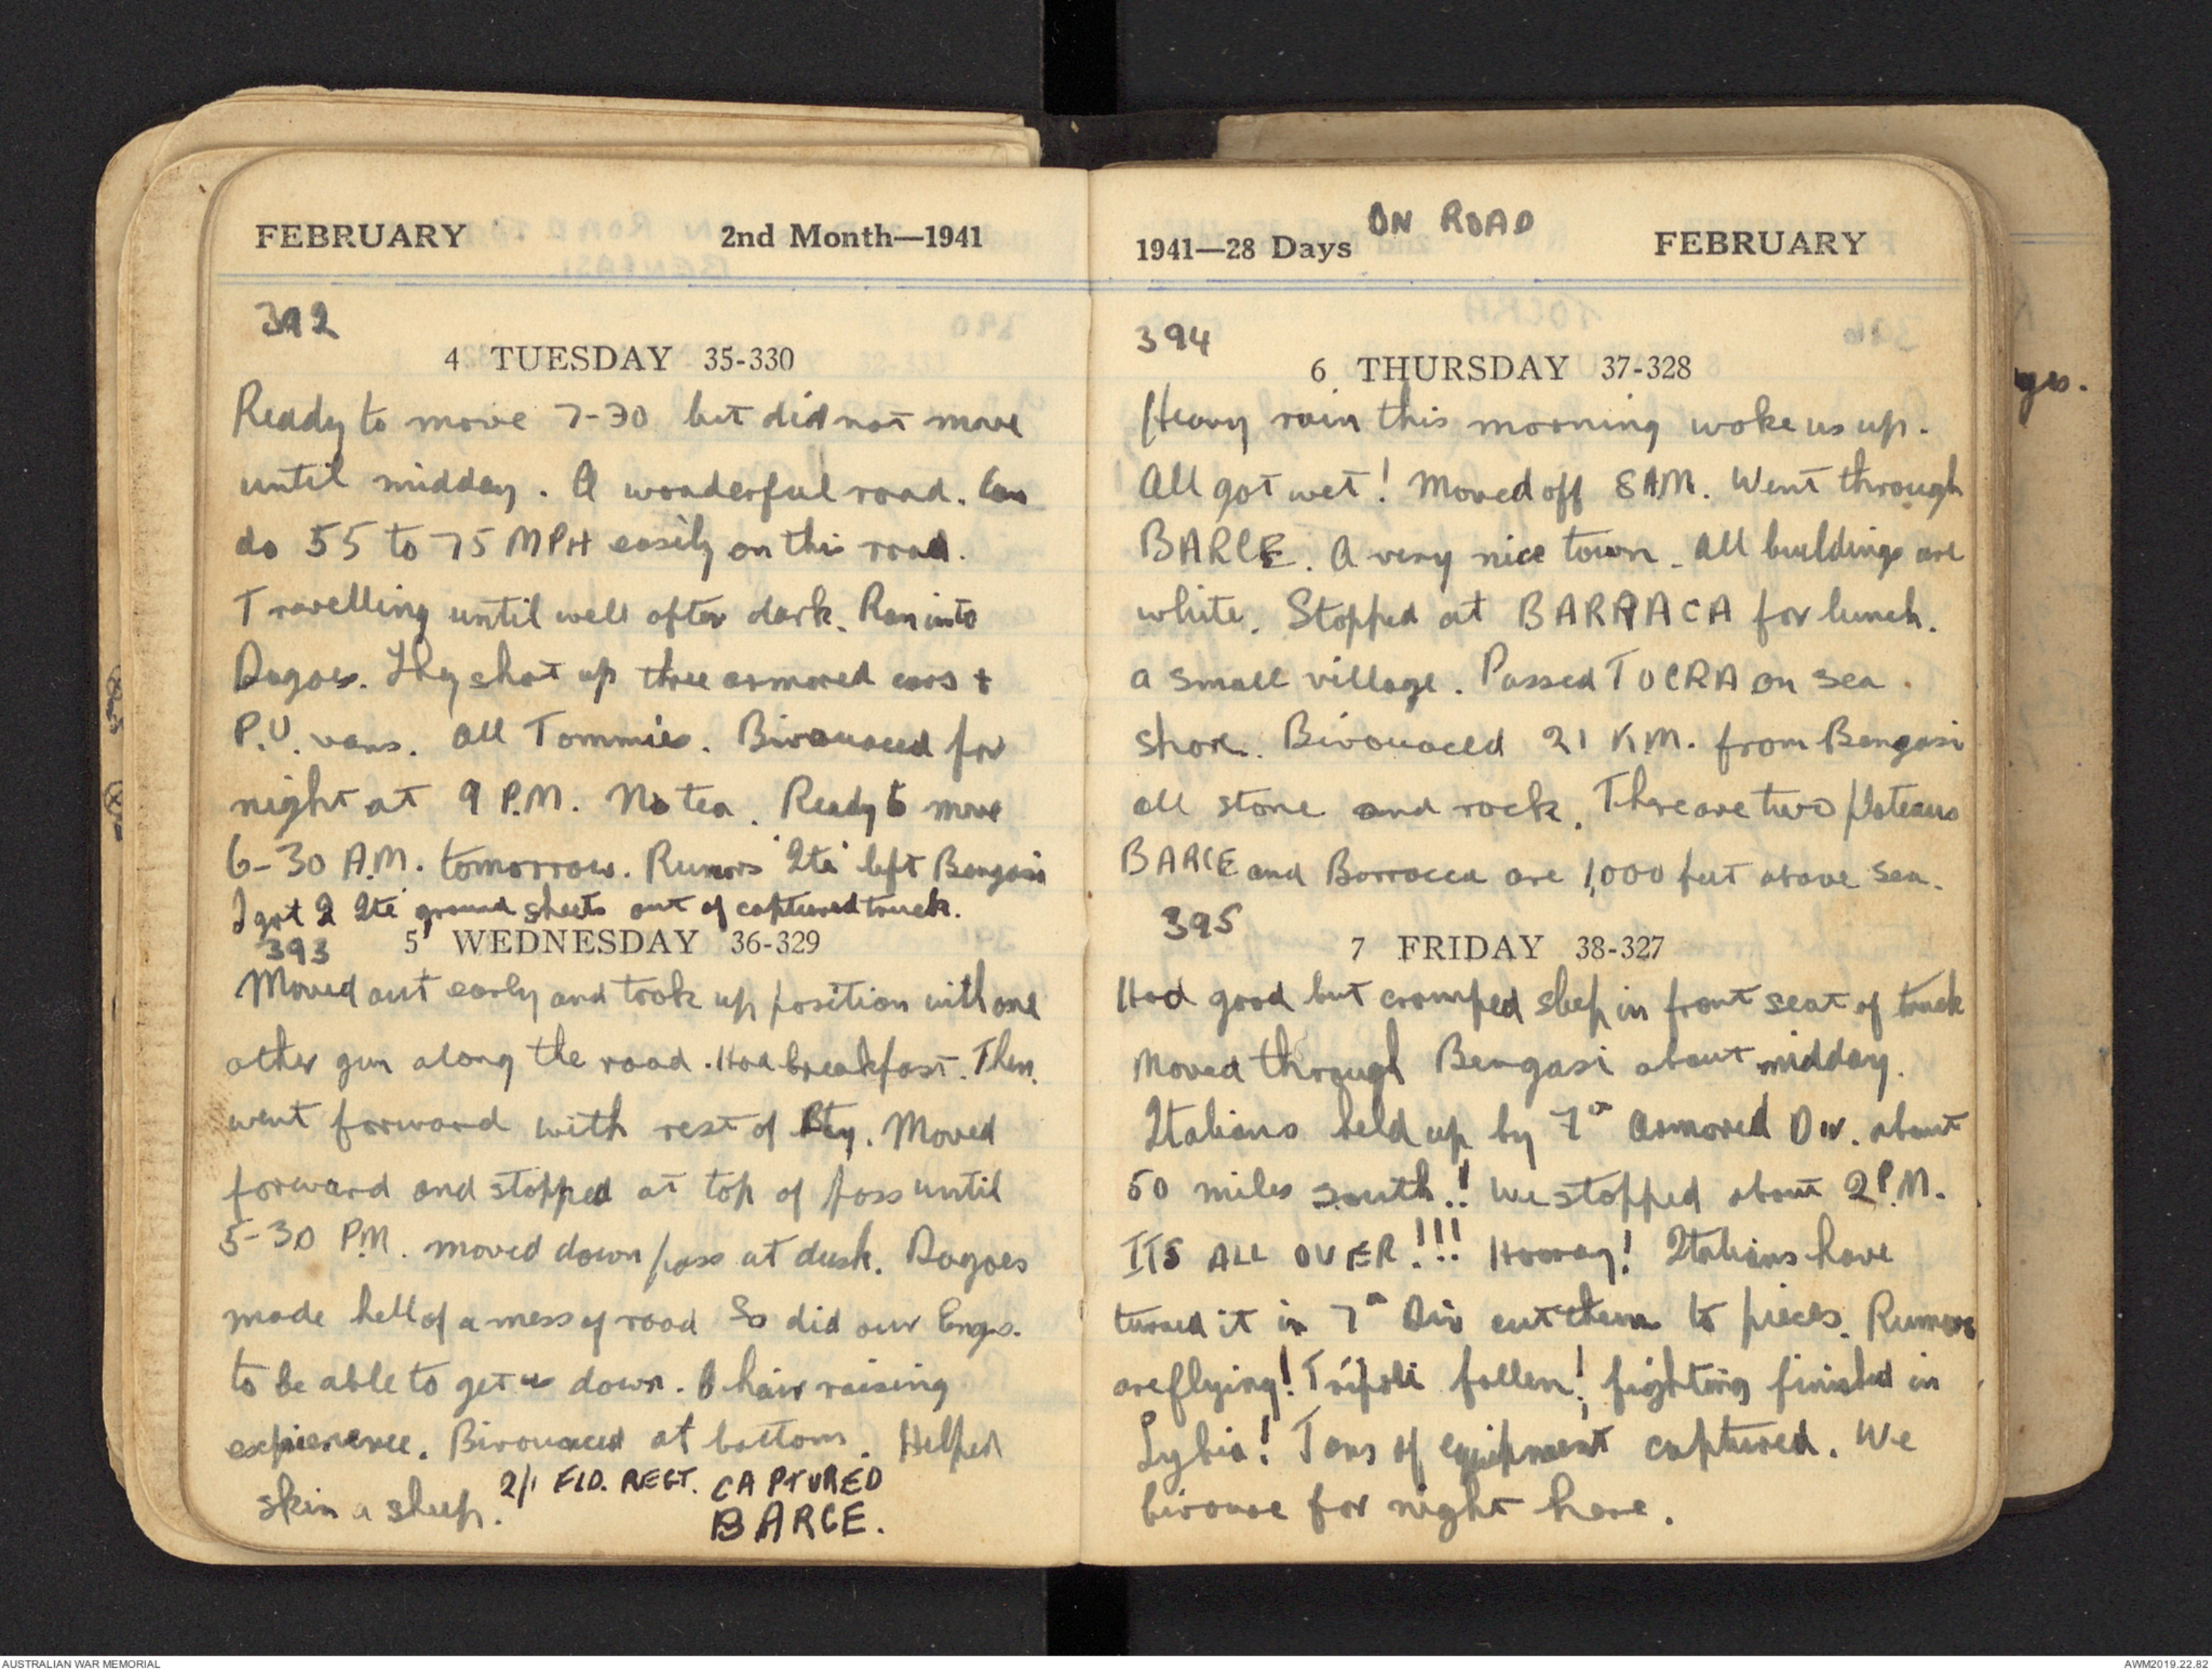 FEBRUARY 2nd Month—1941
392
4 TUESDAY 35-330
Ready to move 7-30 but did not move
until midday. A wonderful road. Can
do 55 to 75 MPH easily on this road.
Travelling until well after dark. Ran into
Dagoes. They shot up three armored cars +
P.U. vans. All Tommies. Bivouaced for
night at 9 P.M. No tea. Ready to move
6-30 A.M. tomorrow. Rumors 'Ite' left Bengasi
I got 2 Ite' ground sheets out of captured truck.
393
5 WEDNESDAY 36-329
Moved out early and took up position with one
other gun along the road. Had breakfast. Then
went forward with rest of Bty. Moved
forward and stopped at top of pass until
5-30 P.M. moved down pass at dusk. Dagoes
made hell of a mess of road So did our Engs.
to be able to get us down. A hair raising
expierence. Bivouaced at bottom. Helped
skin a sheep. 2/1 FLD. REGT. CAPTURED
BARCE.
ON ROAD
1941—28 Days FEBRUARY
394
6 THURSDAY 37-328
Heavy rain this morning woke us up.
All got wet! Moved off 8 AM. Went through
BARCE. A very nice town. All buildings are
white. Stopped at BARRACA for lunch.
a small village. Passed TOCRA on sea
shore. Bivouaced 21 K.M. from Bengasi
all stone and rock. There are two plateaus
BARCE and Barracca are 1,000 feet above sea.
395
7 FRIDAY 38-327
Had good but cramped sleep in front seat of truck
Moved through Bengasi about midday.
Italians held up by 7th Armored Div. about
50 miles south!! We stopped about 2 P.M.
ITS ALL OVER!!! Hooray! Italians have
turned it in 7th Div cut them to pieces. Rumors
are flying! Tripoli fallen! fighting finished in
Lybia! Tons of equipment captured. We
bivouac for night here.
yes.
AUSTRALIAN WAR MEMORIAL AWM2019.22.82